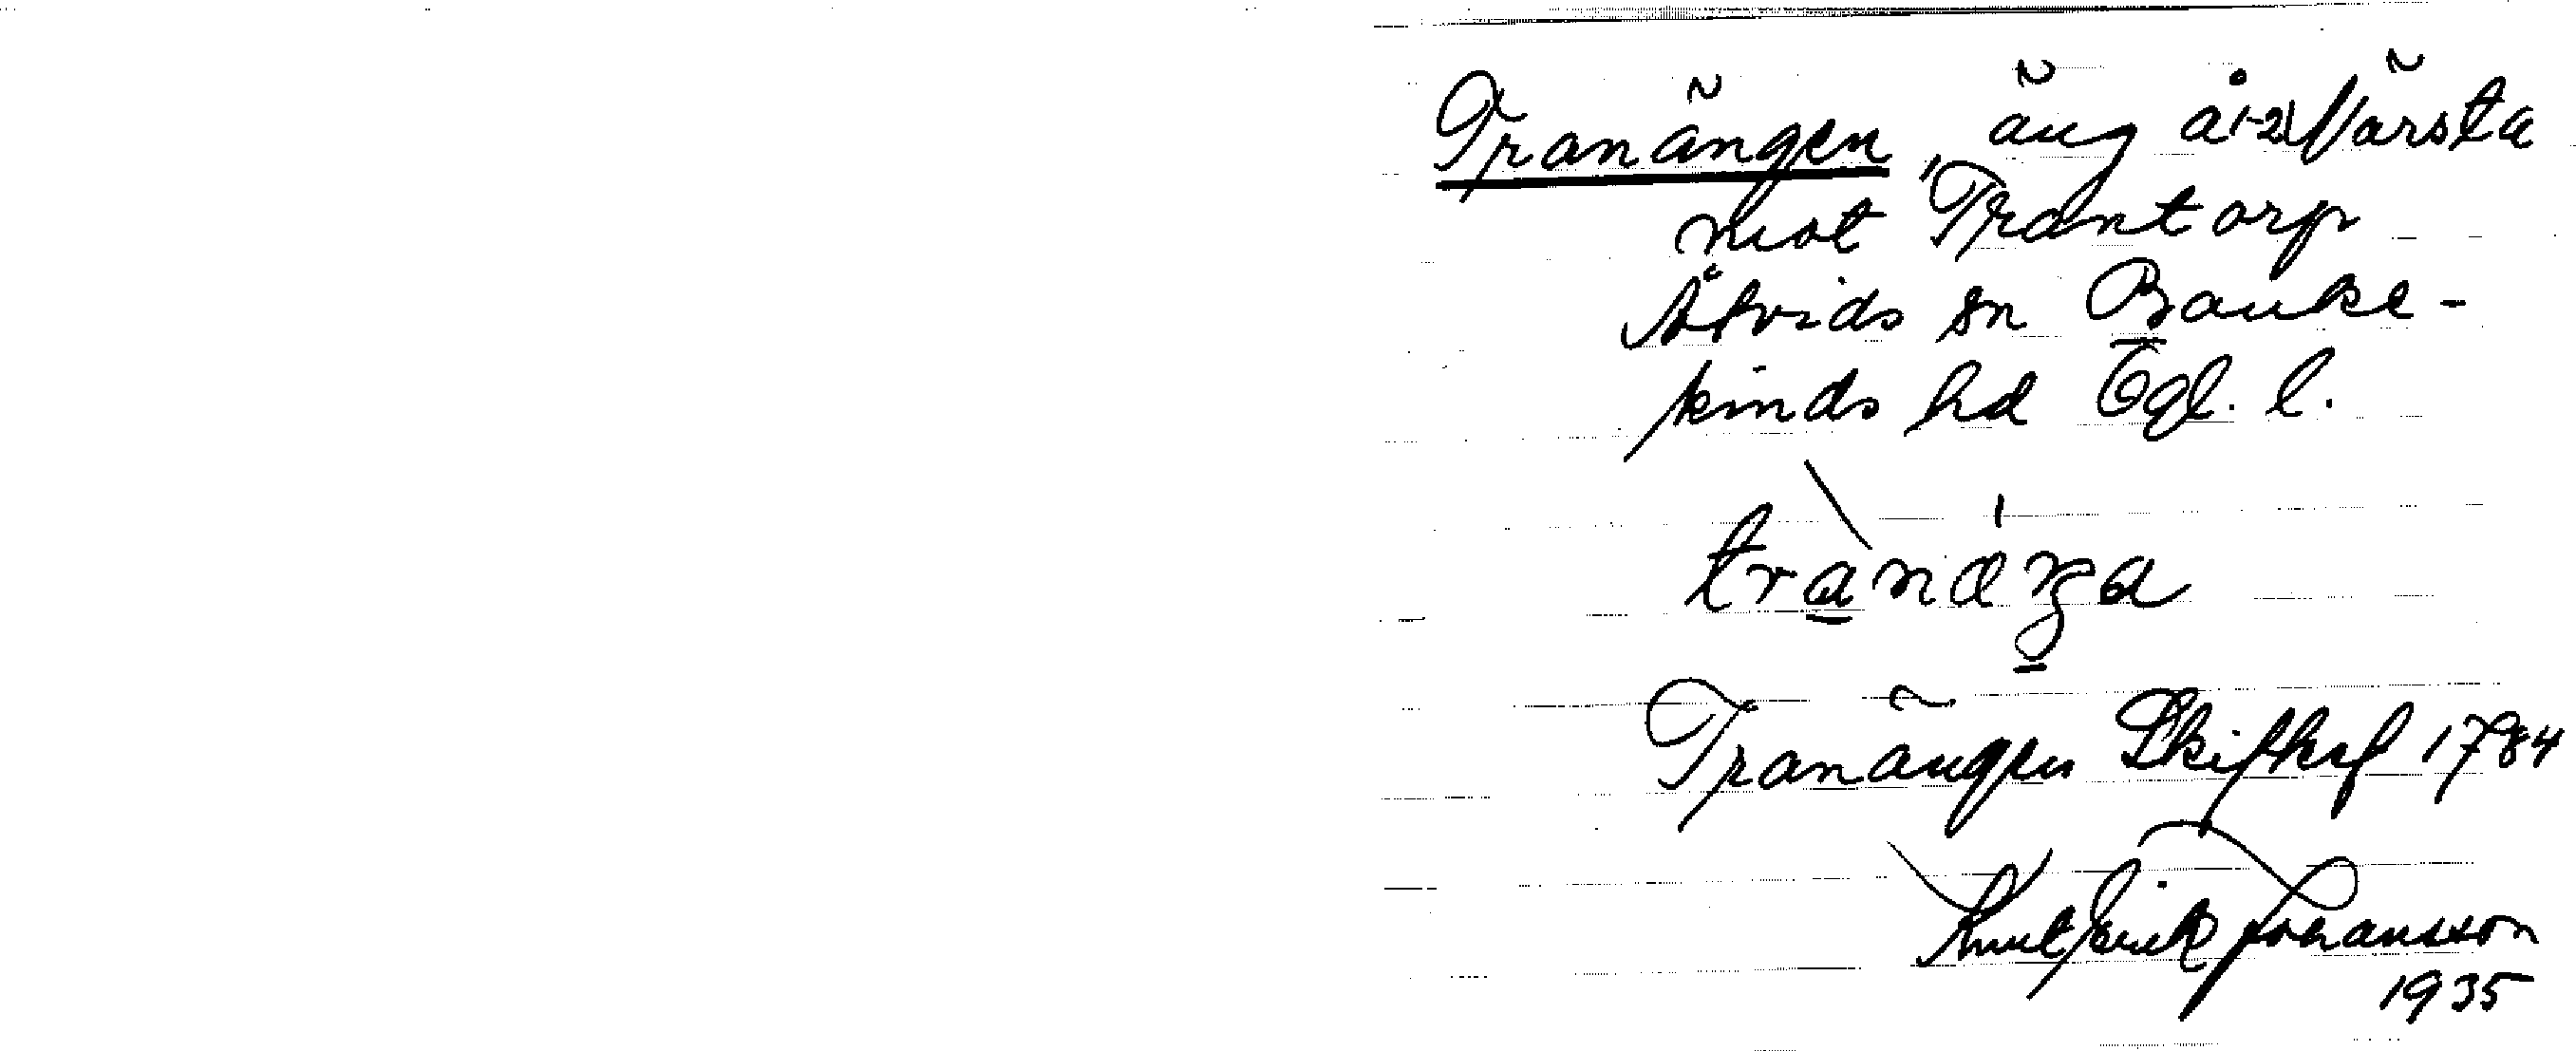 Tranängen, äng å 1-2 Värsta
mot Trantorp
Åtvids sn Banke-
kinds hd Ögl. l.
Tranängen Skifteskf 1784
Knut Erik Johansson
1935